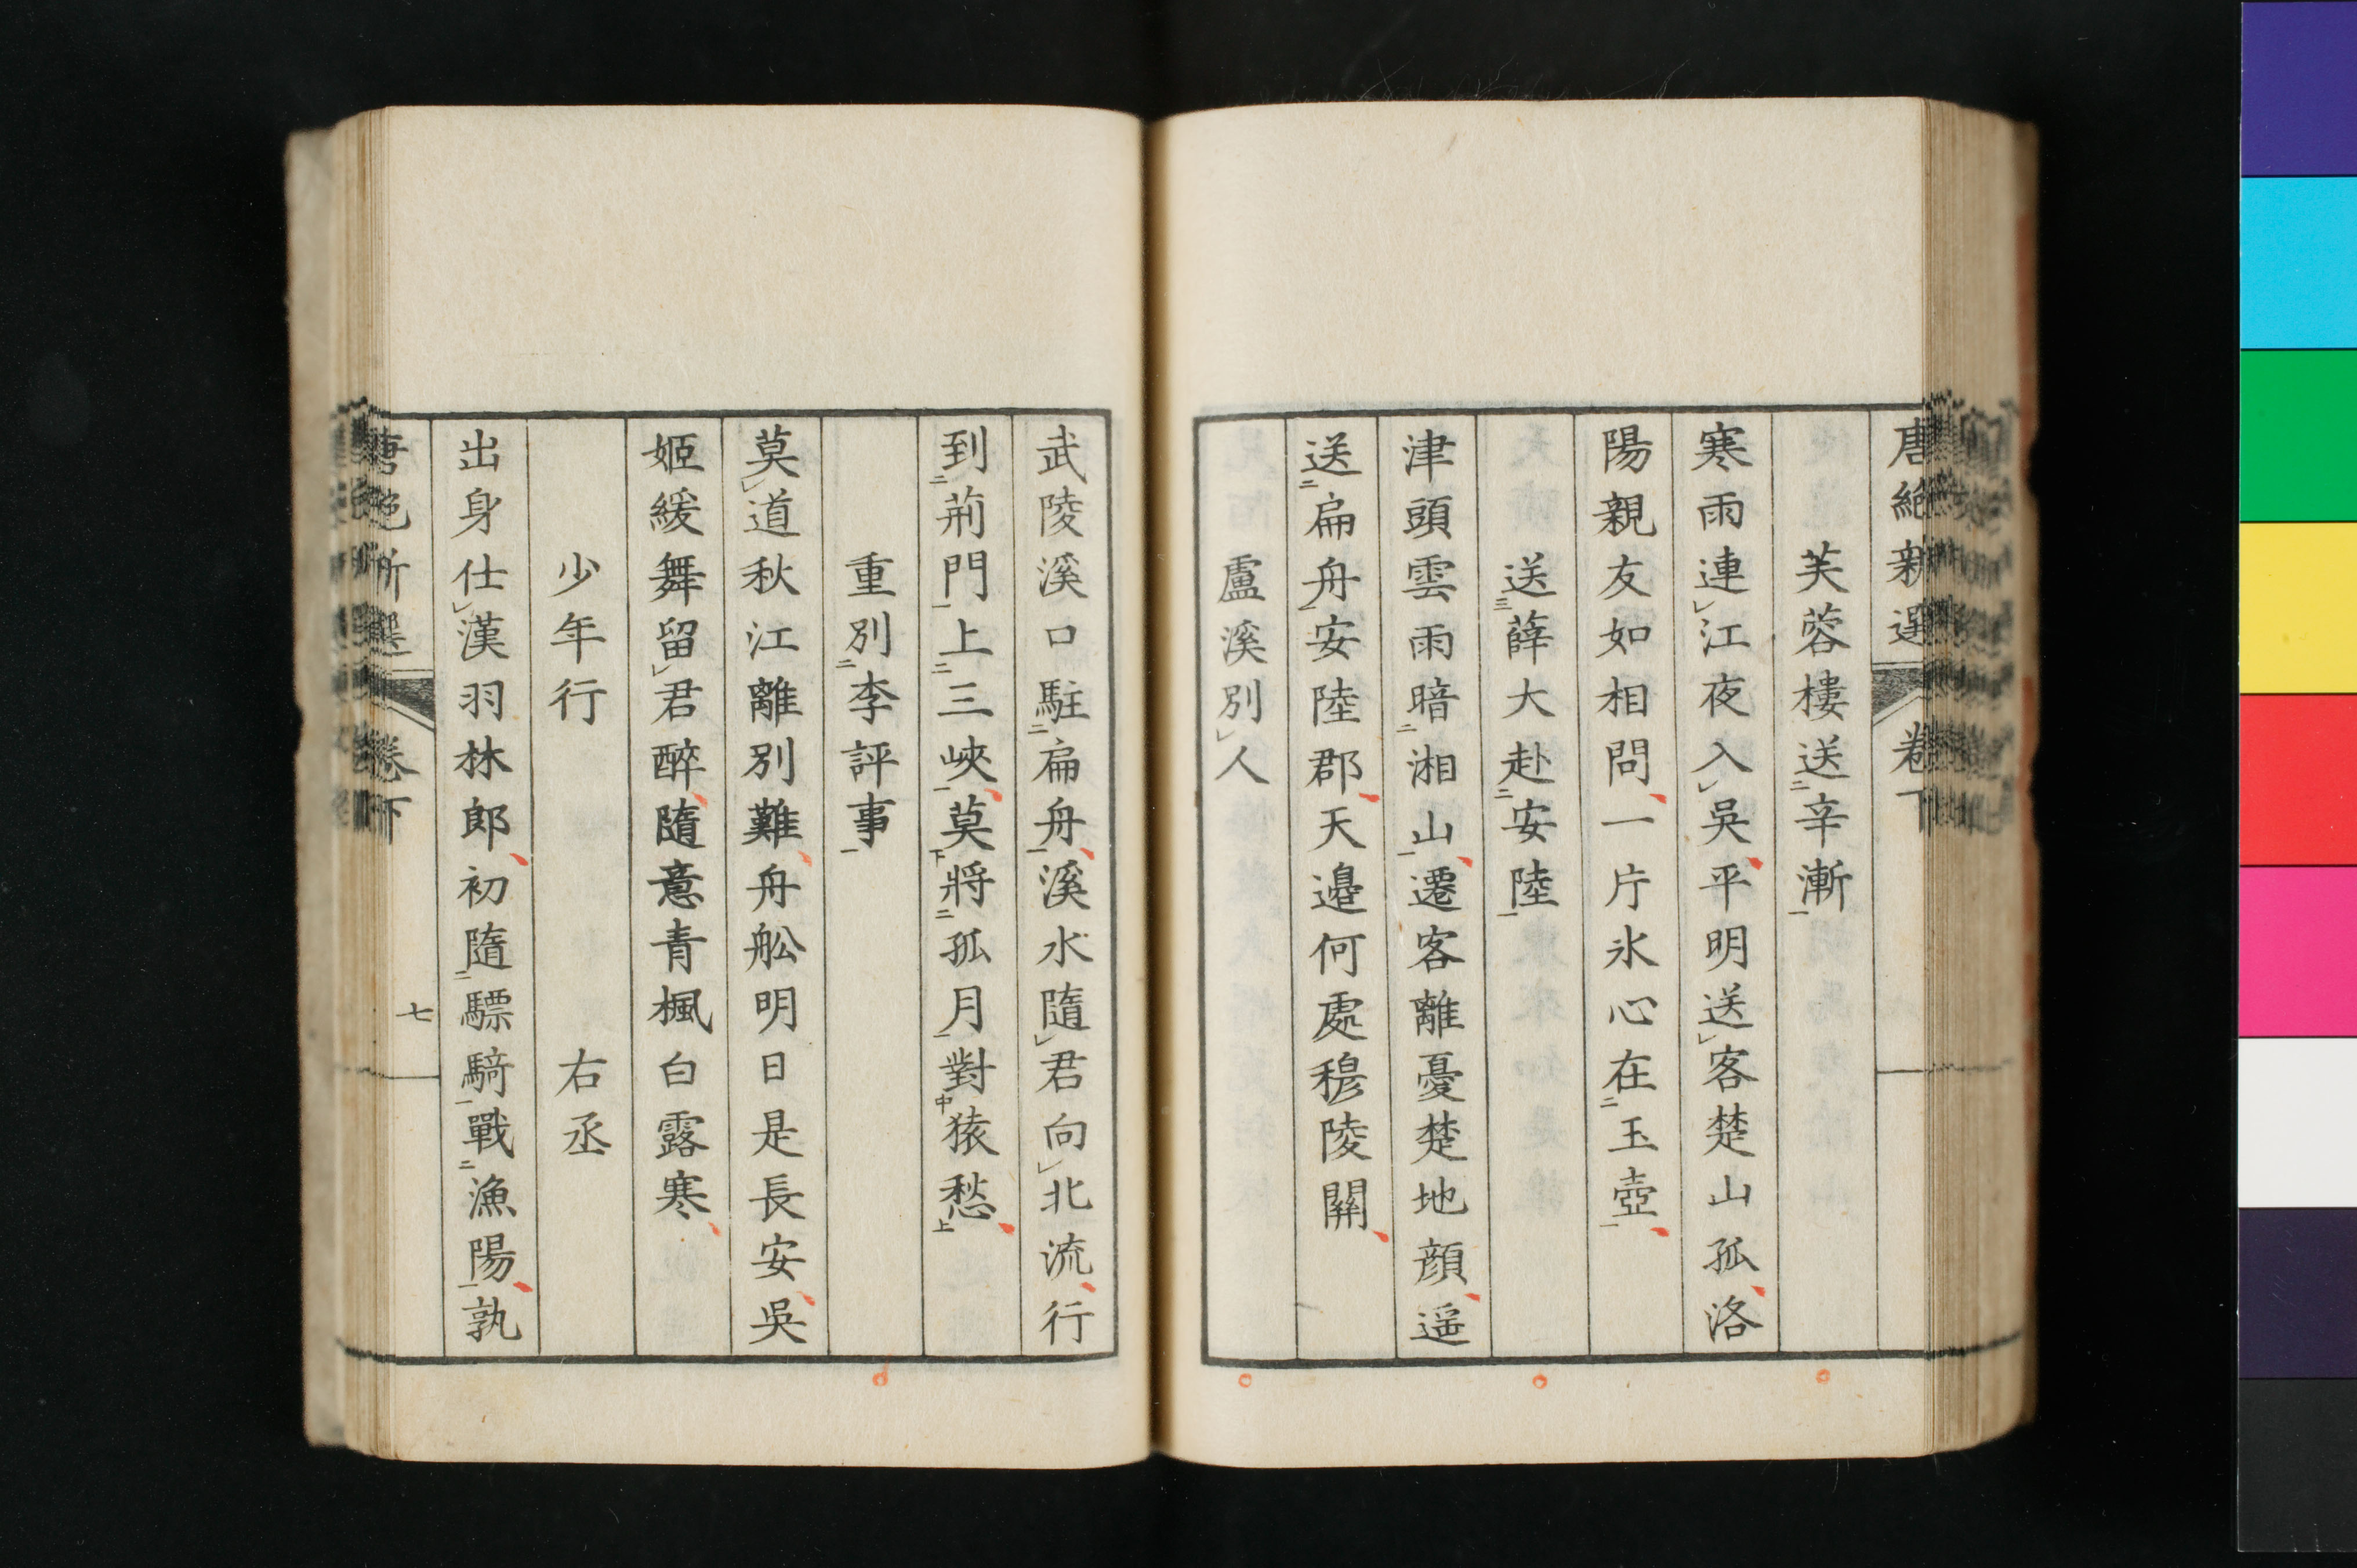 唐絶新選 卷下
芙蓉樓送二辛漸一
寒雨連㆑江夜入㆑吳平明送㆑客楚山孤洛
陽親友如相問一片氷心在二玉壺一
送三薛大赴二安陸一
津頭雲雨暗二湘山一遷客離憂楚地顔遥
送二扁舟一安陸郡天邉何處穆陵關
盧溪別㆑人
武陵溪口駐二扁舟一溪水隨㆑君向㆑北流行
到二荊門一上二三峽一莫下將二孤月一對中猿愁上
重別二李評事一
莫㆑道秋江離別難舟舩明日是長安吳
姬緩舞留㆑君醉隨意青楓白露寒
少年行 右丞
出身仕㆑漢羽林郎初隨二驃騎一戰二漁陽一孰
唐絶新選 卷下 七